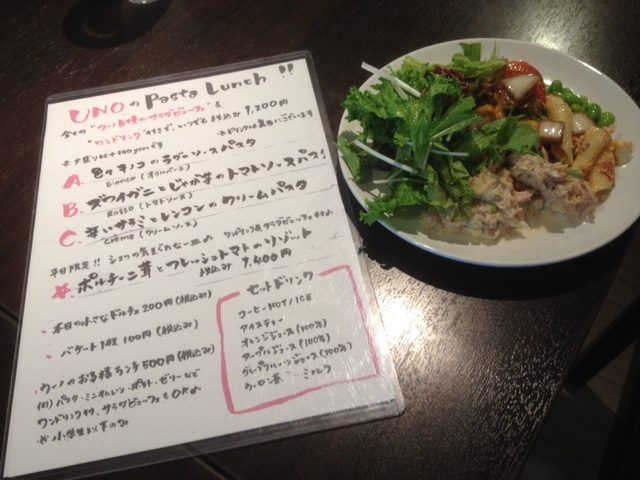 UNOの Pasta Lunch !!
全ての"ウーノ自慢のサラダビュッフェ"&
"ワンドリンク"付きで、いつでも税込み 1,200円
※大盛りは+100yenです ※ドリンクは裏にございます
A. 色々キノコのラグーソースパスタ
Bianco (オイルベース)
B. ズワイガニとじゃが芋のトマトソースパスタ
Rosso (トマトソース)
C. 辛いサラミとレンコンのクリームパスタ
Crema (クリームソース)
平日限定!! シェフの気まぐれな一皿 ワンドリンク&サラダビュッフェ付き
☆ ポルチーニ茸とフレッシュトマトのリゾット
税込み 1,400円
本日の小さなドルチェ 200円 (税込み)
バケット1枚 100円 (税込み)
ウーノのお子様ランチ 500円 (税込み)
(例) パスタ・ミニオムレツ・ポテト・ゼリーなど
ワンドリンク付、サラダビュッフェもOK♪
※小学生以下のみ
セットドリンク
コーヒー HOT / ICE
アイスティー
オレンジジュース (100%)
アップルジュース (100%)
グレープフルーツジュース (100%)
ウーロン茶 ミルク